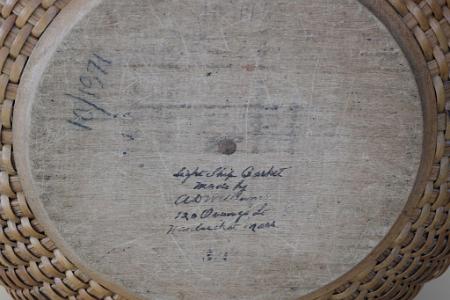 Light Ship Basket
made by
A D Williams
120 Orange St
Nantucket Mass